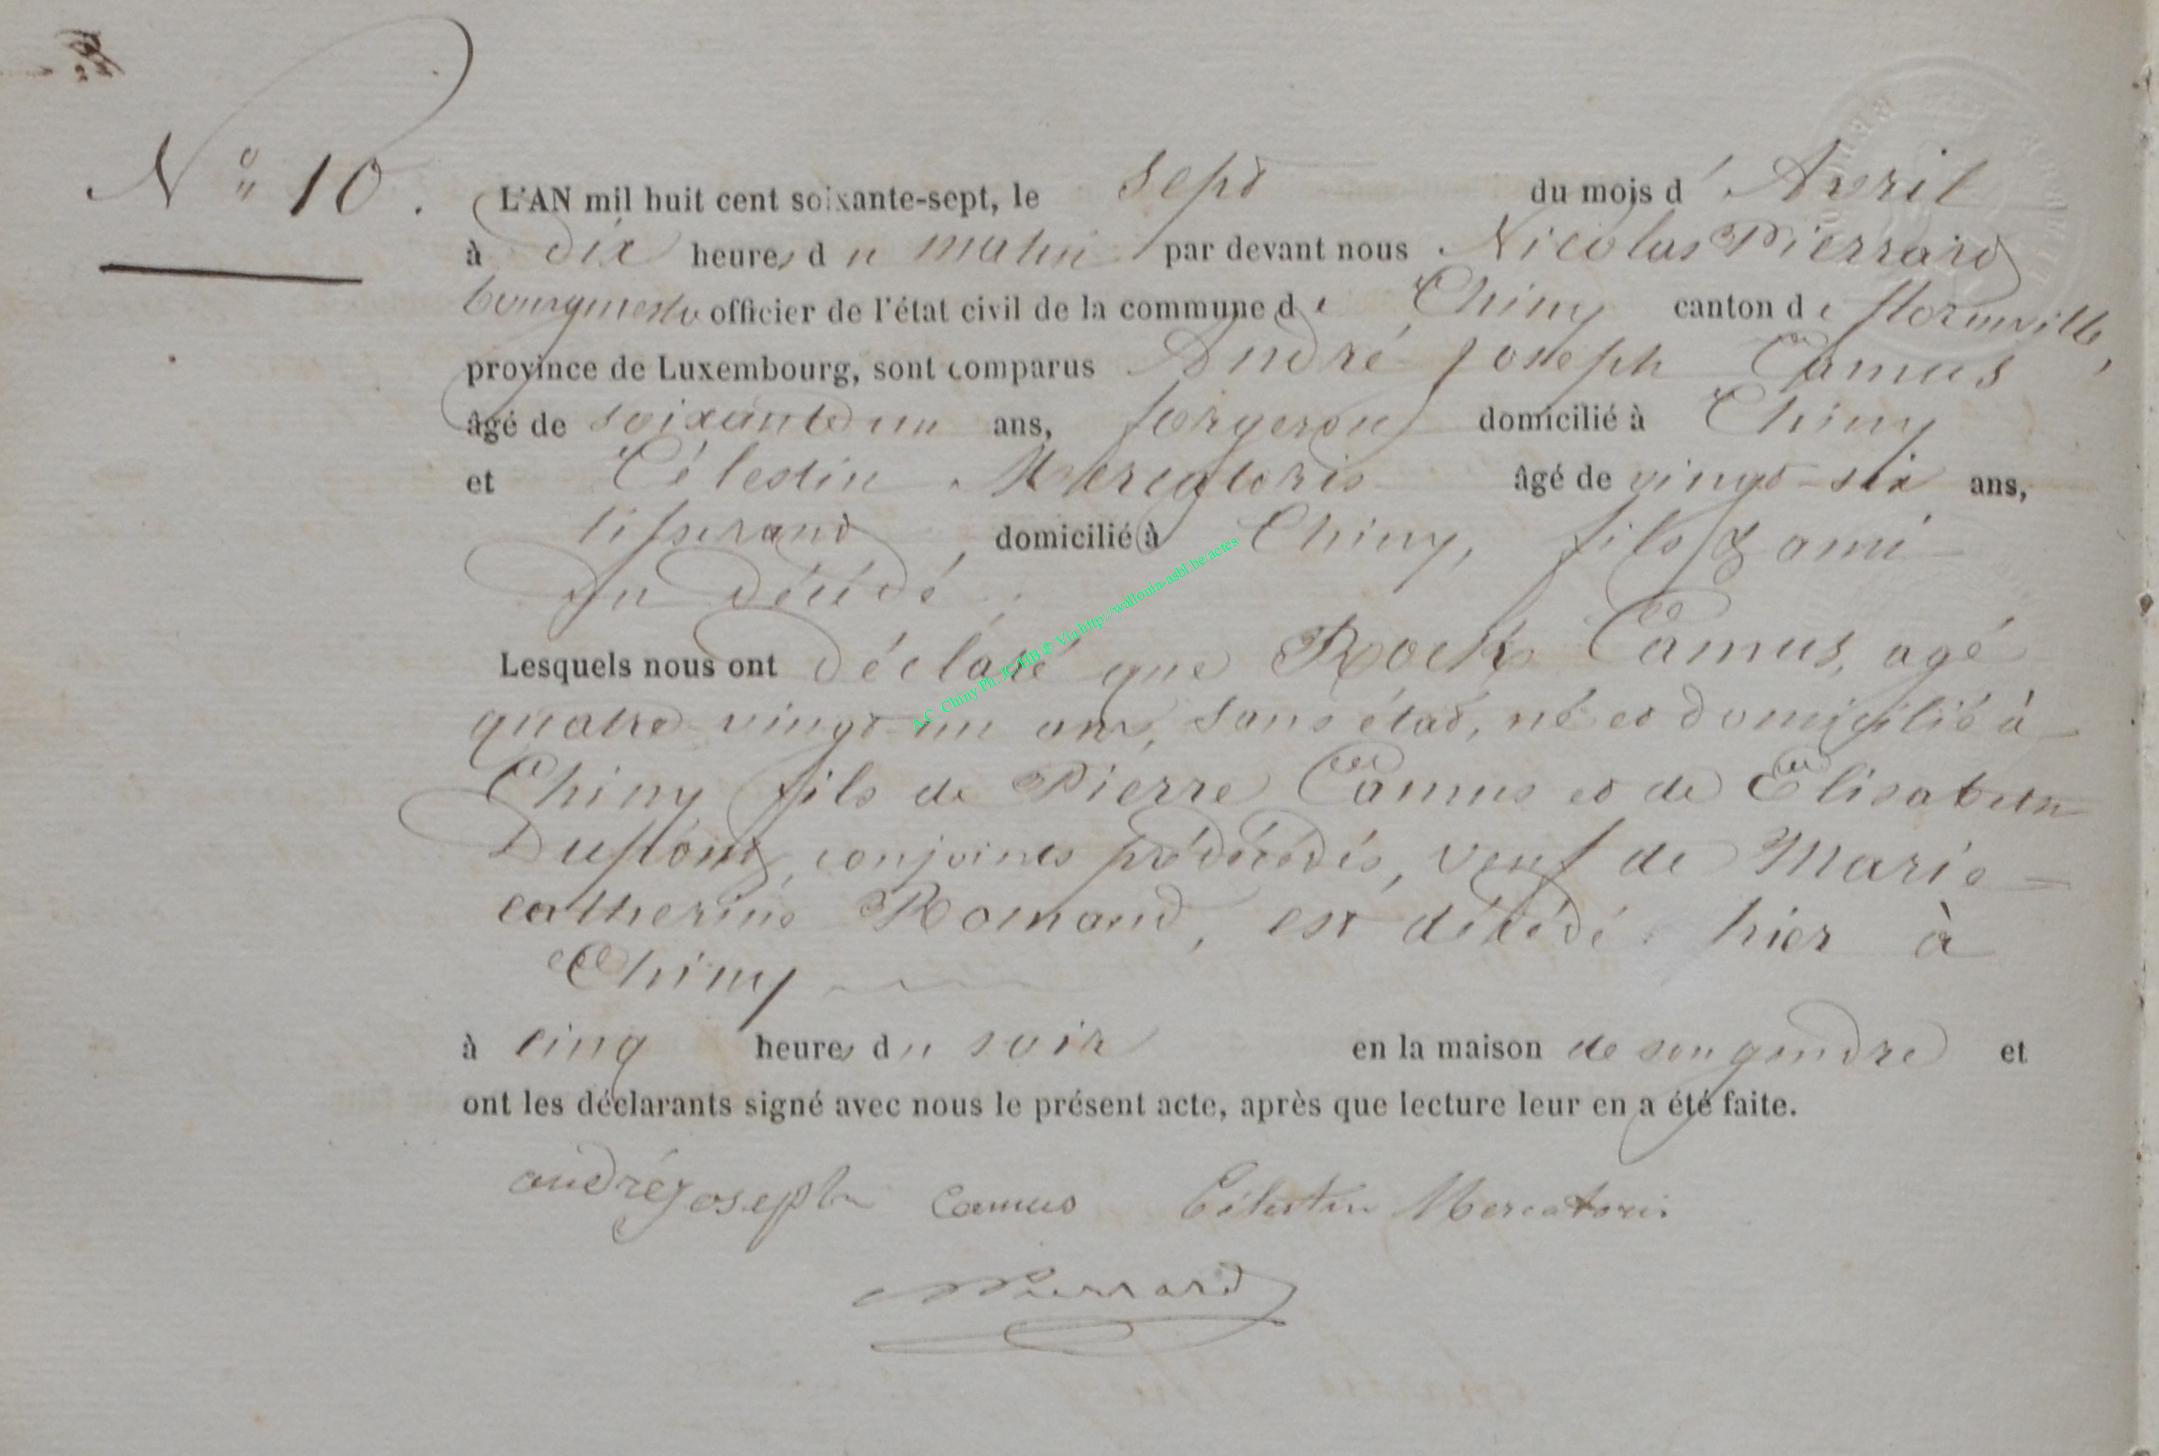 N° 10.
L'AN mil huit cent soixante-sept, le sept du mois d'Avril
à dix heures du matin par devant nous Nicolas Pierrard
bourgmestre officier de l'état civil de la commune de Chiny canton de florenville,
province de Luxembourg, sont comparus André Joseph Camus
âgé de soixante un ans, forgeron domicilié à Chiny
et Célestin Mercatoris âgé de vingt-six ans,
tisserand, domicilié à Chiny, fils & ami
du décédé.
Lesquels nous ont déclaré que Roch Camus, agé
quatre-vingt-un ans, sans état, né et domicilié à
Chiny fils de Pierre Camus et de Élisabeth
Dupont, conjoints prédécédés, veuf de Marie-
catherine Romand, est décédé hier à
Chiny
à cinq heures du soir en la maison de son gendre et
ont les déclarants signé avec nous le présent acte, après que lecture leur en a été faite.
andré joseph Camus Célestin Mercatoris
NPierrard